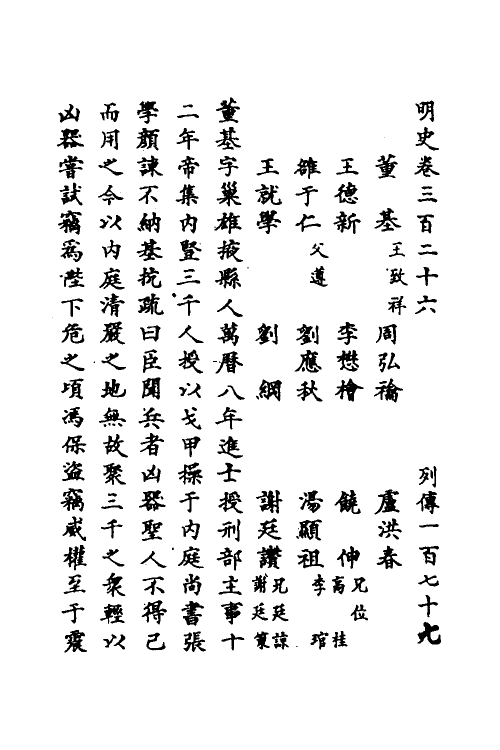 明史卷三百二十六 列傳一百七十九
董基 王致祥 周弘禴 盧洪春
王德新 李懋檜 饒伸 兄位
雒于仁 父遵 劉應秋 湯顯祖 李琯 高桂
王就學 劉綱 謝廷讚 兄廷諒 謝廷策
董基字巢雄掖縣人萬曆八年進士授刑部主事十
二年帝集內豎三千人授以戈甲操于內庭尚書張
學顏諫不納基抗疏曰臣聞兵者凶器聖人不得已
而用之今以內庭清嚴之地無故聚三千之衆輕以
凶器嘗試竊爲陛下危之頃馮保盜竊威權至于震